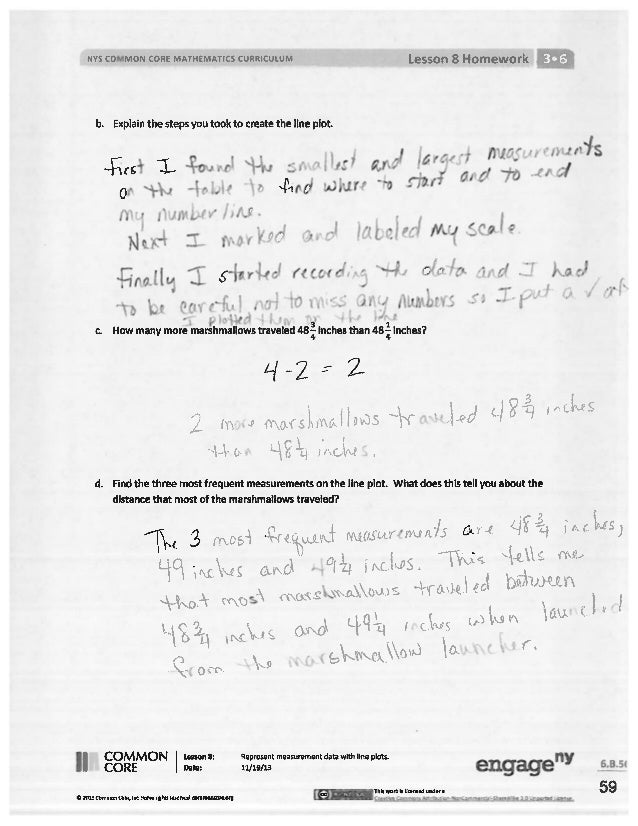 NYS COMMON CORE MATHEMATICS CURRICULUM Lesson 8 Homework 3•6
b. Explain the steps you took to create the line plot.
First I found the smallest and largest measurements
on the table to find where to start and to end
my number line.
Next I marked and labeled my scale.
Finally I started recording the data and I had
to be careful not to miss any numbers so I put a √ aft
I plotted them on the line
c. How many more marshmallows traveled 48 3/4 inches than 48 1/4 inches?
4-2 = 2
2 more marshmallows traveled 48 3/4 inches
than 48 1/4 inches.
d. Find the three most frequent measurements on the line plot. What does this tell you about the
distance that most of the marshmallows traveled?
The 3 most frequent measurements are 48 3/4 inches,
49 inches and 49 1/4 inches. This tells me
that most marshmallows traveled between
48 3/4 inches and 49 1/4 inches when launched
from the marshmallow launcher.
COMMON CORE
Lesson 8: Represent measurement data with line plots.
Date: 11/19/13
engageny
6.B.5
59
© 2013 Common Core, Inc. commoncore.org
This work is licensed under a
Creative Commons Attribution-NonCommercial-ShareAlike 3.0 Unported License.